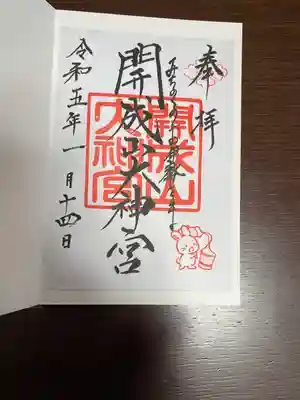 奉拝
開成山大神宮
開成山
大神宮
令和五年一月十四日